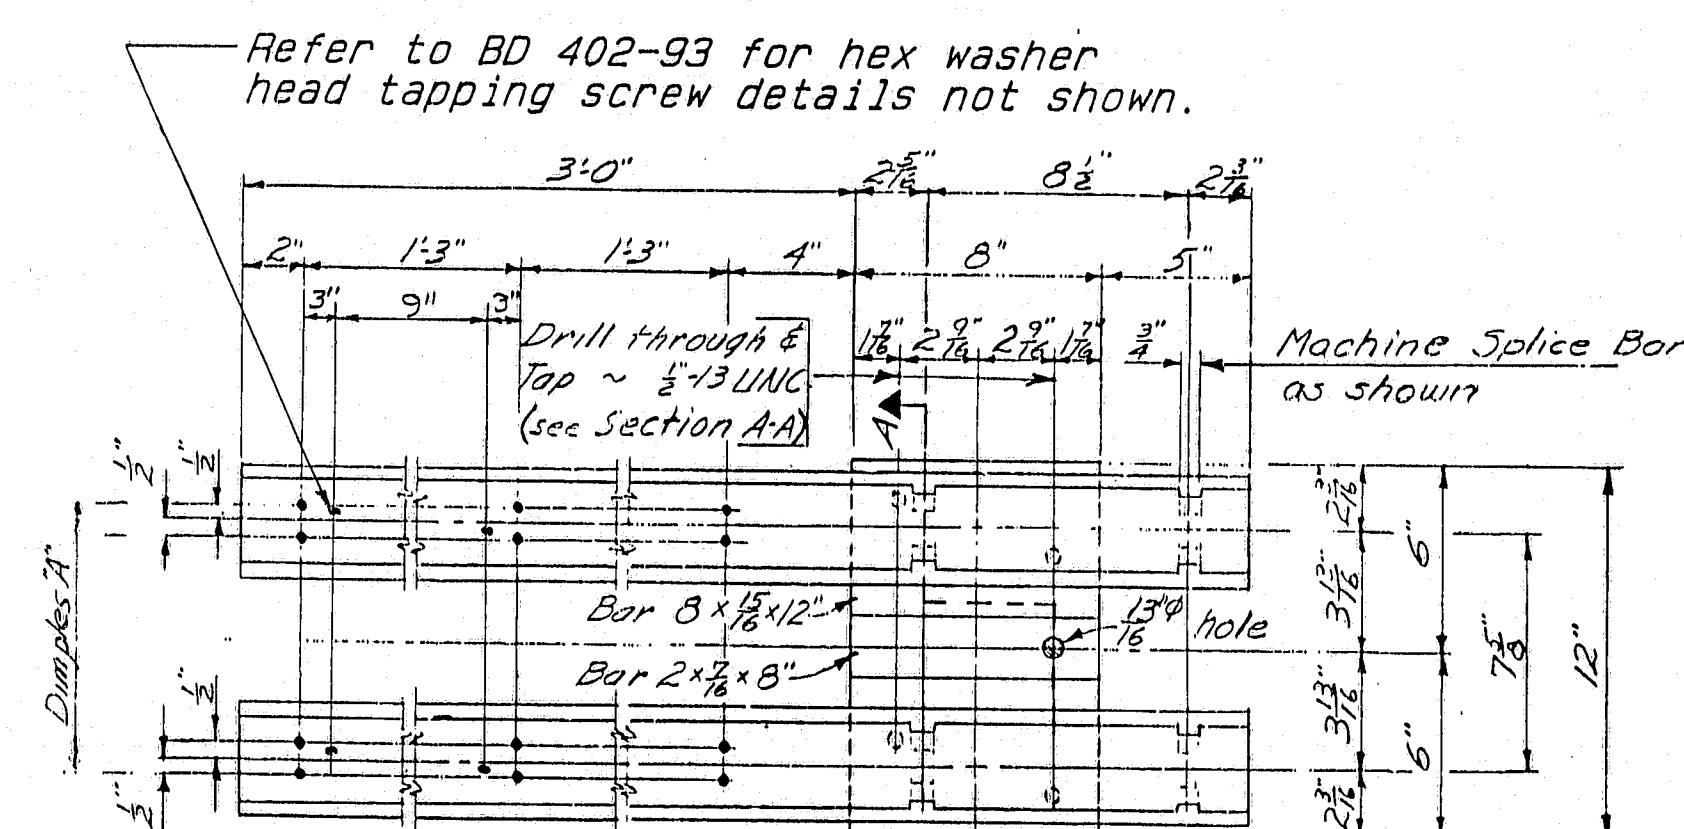 Refer to BD 402-93 for hex washer
head tapping screw details not shown.
3'-0" 2 5/16" 8 1/2" 2 3/16"
2" 1'-3" 1'-3" 4" 8" 5"
3" 9" 3"
Drill through &
Tap ~ 1/2"-13 UNC
(see Section A-A)
1 7/16" 2 9/16" 2 9/16" 1 7/16" 3/4"
Machine Splice Bar
as shown
A
1/2" 1/2"
2 3/16"
6"
3 13/16"
Dimples "A"
Bar 8 x 15/16 x 12"
13/16"φ hole
7 5/8"
12"
Bar 2 x 7/16 x 8"
1/2"
3 13/16"
6"
1/2"
2 3/16"